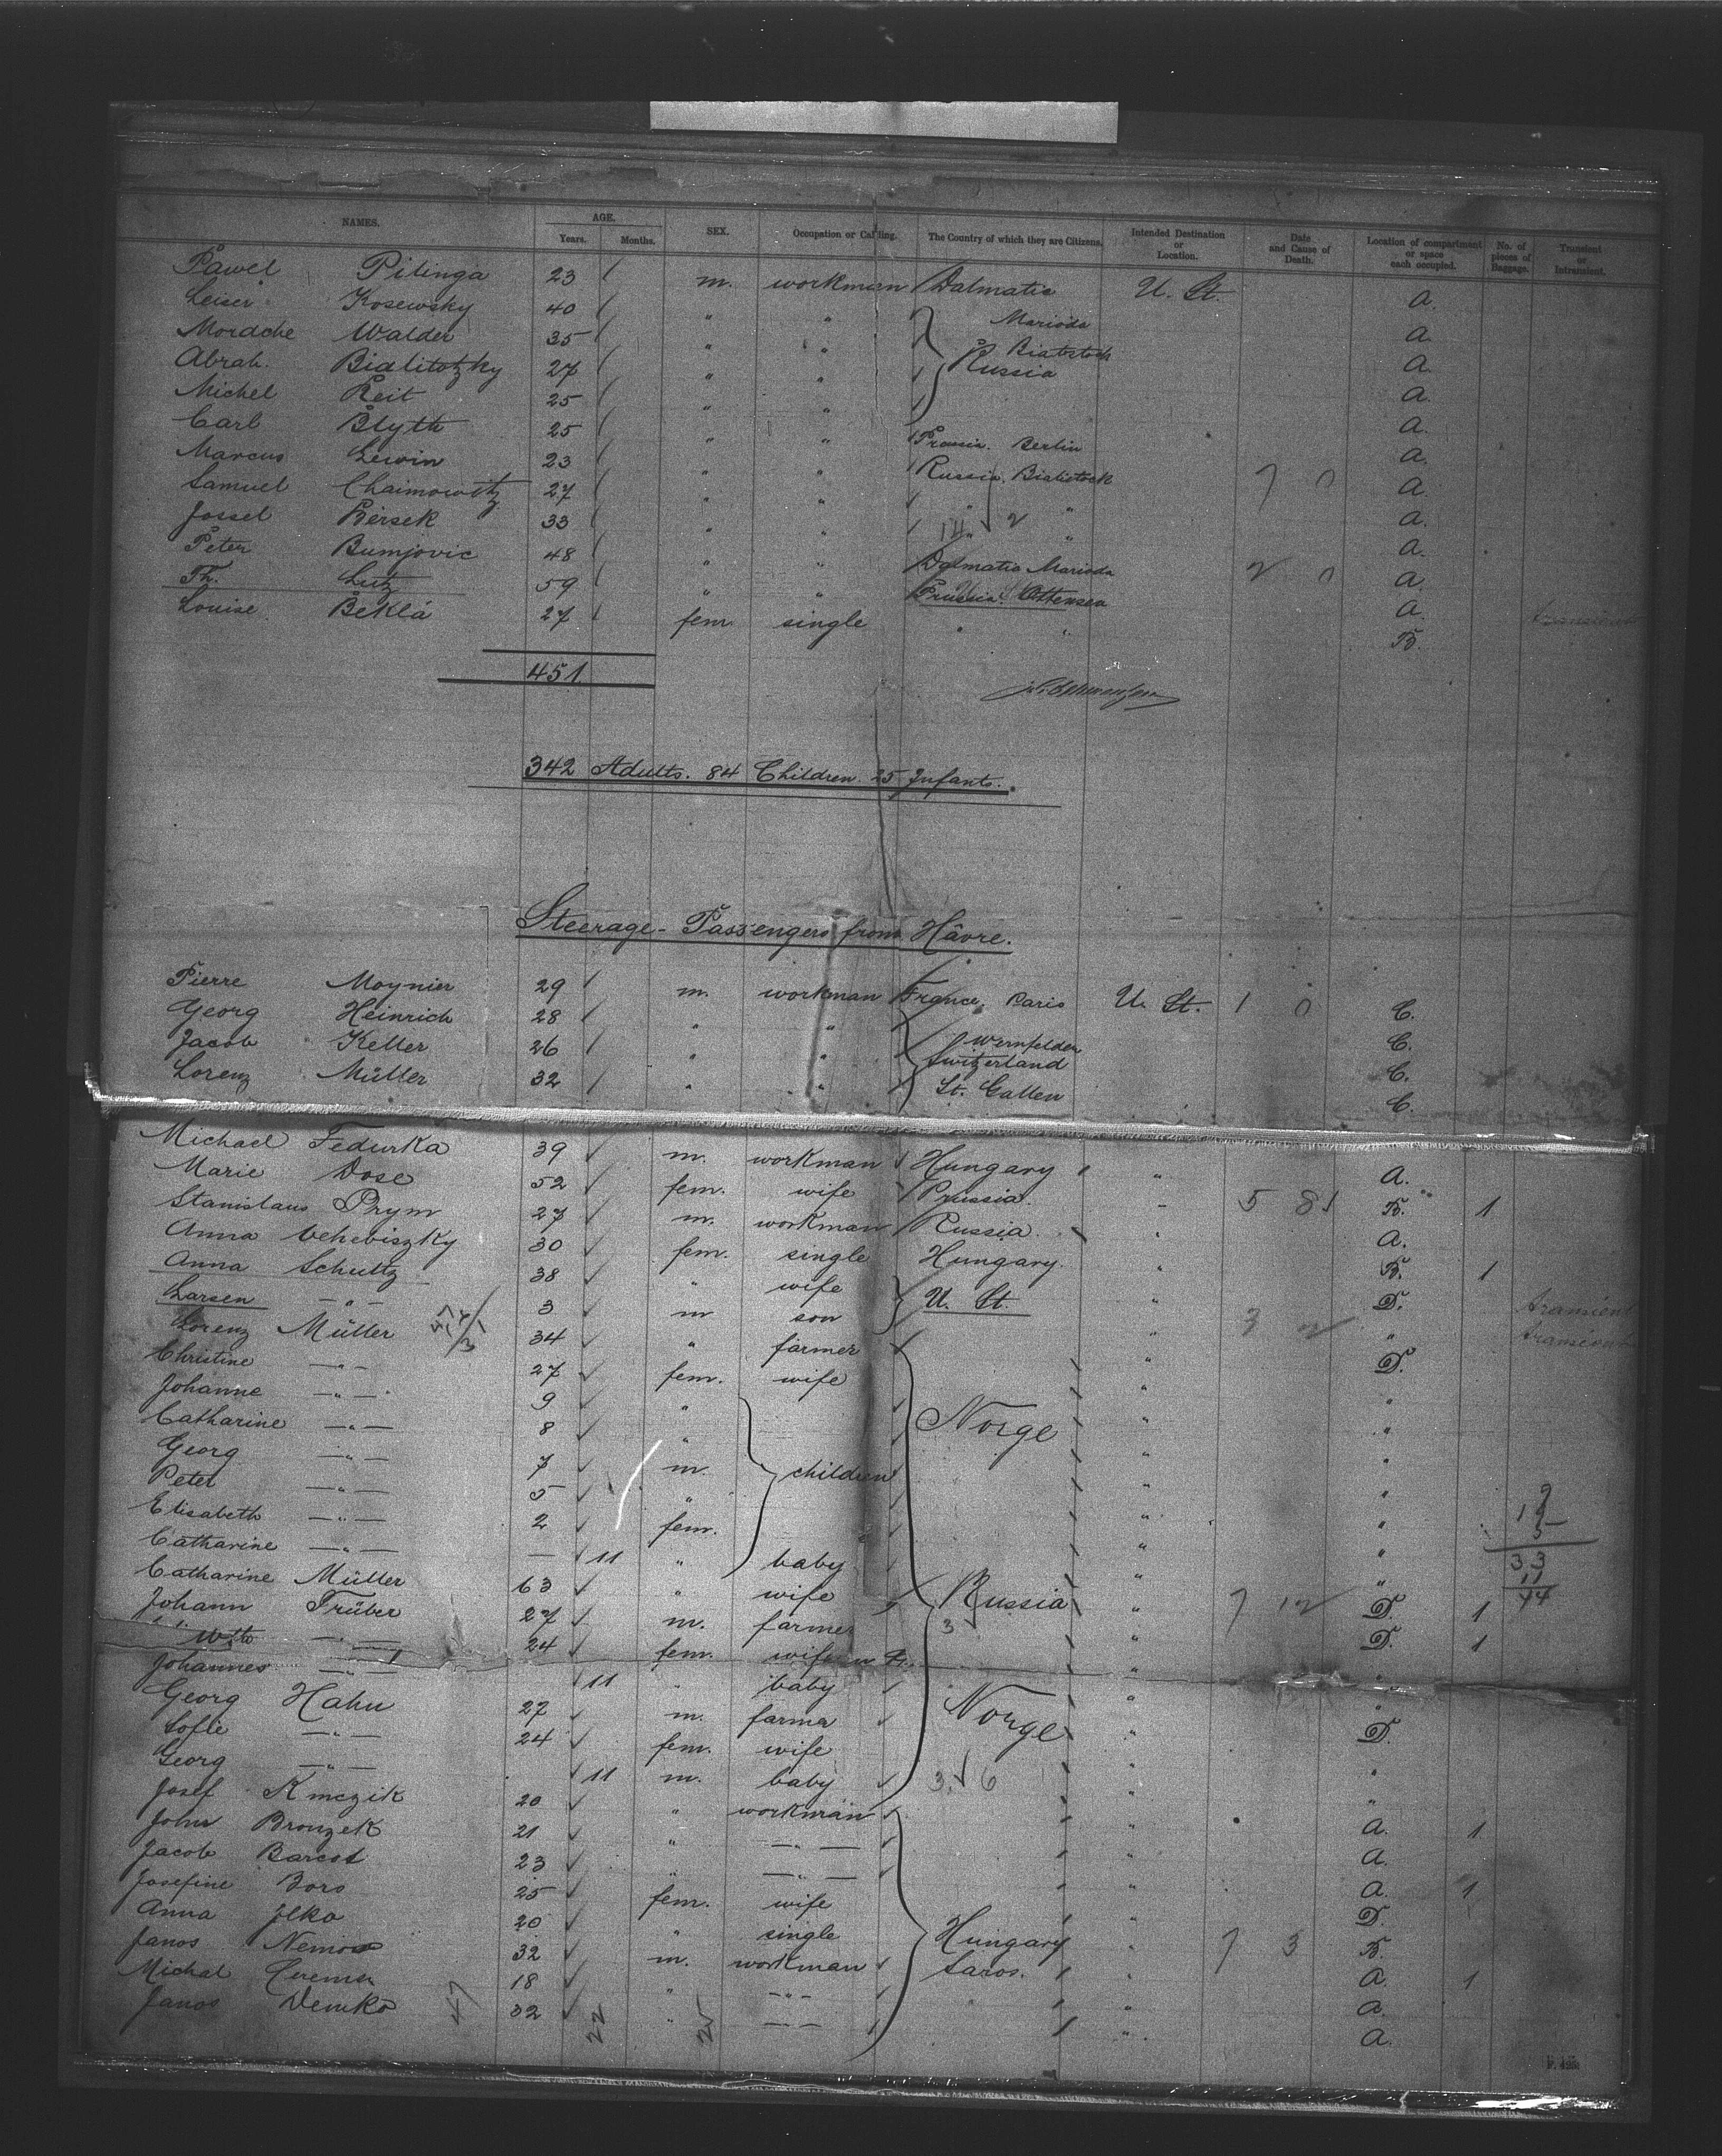 NAMES. AGE. SEX. Occupation or Calling. The Country of which they are Citizens. Intended Destination or Location. Date and Cause of Death. Location of compartment or space each occupied. No. of pieces of Baggage. Transient or Intransient.
Years. Months.
Pawel Pilinga 23 m. workman Dalmatia U. St. a.
Leiser Kosewsky 40 " " Marioda a.
Mordche Walder 35 " " Bialistock a.
Abrah. Bialitotzky 27 " " Russia a.
Michel Reit 25 " " a.
Carl Blyth 25 " " Prussia. Berlin a.
Marcus Lewin 23 " " Russia. Bialistock a.
Samuel Chaimowitz 27 " " " " a.
Jossel Persek 33 " " " " a.
Peter Bumjovic 48 " " Dalmatia Marioda a.
Th. Lutz 59 " " Prussia. Ottensen a.
Louise Beklá 27 fem. single " " B. transient
451
342 Adults. 84 Children. 25 Infants.
Steerage-Passengers from Hâvre.
Pierre Moynier 29 m. workman France, Paris U. St. 1 0 C.
Georg Heinrich 28 " " C.
Jacob Keller 26 " " Switzerland C.
Lorenz Müller 32 " " St. Gallen C.
Michael Fedurka 39 m. workman Hungary " a.
Marie Dose 52 fem. wife Prussia. " 5 8 B. 1
Stanislaus Prym 27 m. workman Russia. " a.
Anna 30 fem. single Hungary. " B. 1
Anna Schultz 38 " wife U. St. " D. transient
Larsen —"— 3 m son " " transient
Lorenz Müller 34 " farmer " D.
Christine —"— 27 fem. wife " "
Johanne —"— 9 " " "
Catharine —"— 8 " Norge " "
Georg —"— 7 m. children " "
Peter —"— 5 " " "
Elisabeth —"— 2 fem. " "
Catharine —"— — 11 " baby " "
Catharine Müller 63 " wife Russia " D. 1
Johann Früber 27 m. farmer " D. 1
—"— 24 fem. wife " "
Johannes —"— 11 " baby " "
Georg Hahn 27 m. farmer Norge " D.
Sofie —"— 24 fem. wife " "
Georg —"— 11 m. baby " "
Josef Kmczik 20 " workman " a. 1
John Bronzek 21 " —"— " a.
Jacob Barcos 23 " —"— " a. 1
Josefine Boro 25 fem. wife " D.
Anna Jlko 20 " single Hungary " B.
Janos 32 m. workman Saros. " a. 1
Michal 18 " —"— " a.
Janos Demko 32 " —"— " a.